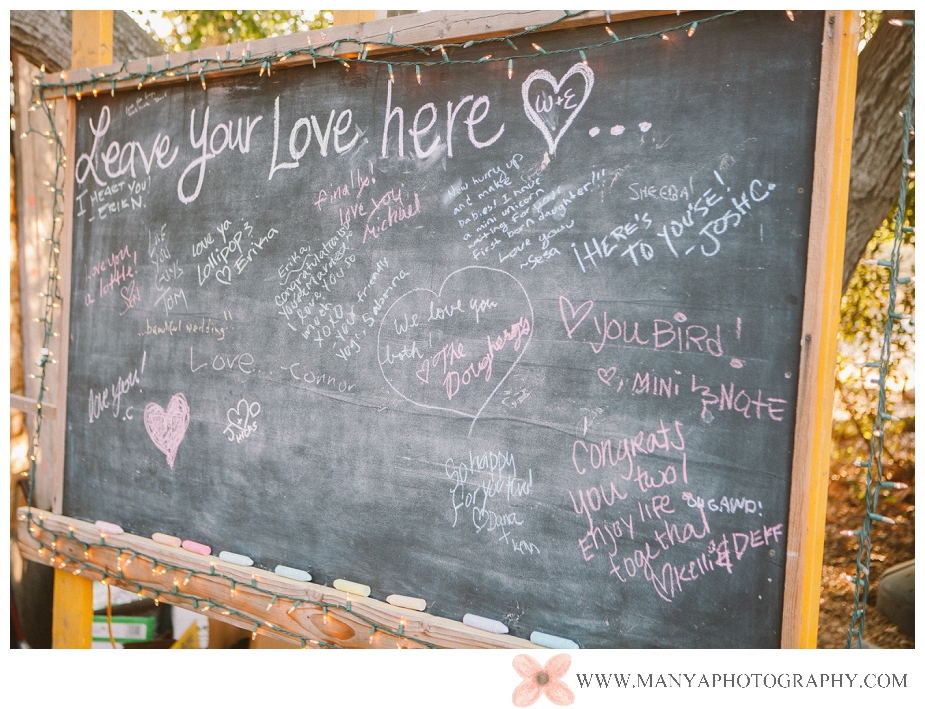 Leave Your Love here W+E ...
I HEART YOU!
- ERIK N.
Love you
a lottle!
LUF
YOU
GUYS
TOM
Love ya
Lollipop's
♡ Erika
finally!
love you
Michael
Now hurry up
and make
babies! I have
a mini unicorn
waiting for your
first born daughter!!!
Love you
~Sesa
SHEEBA!
¡HERE'S
TO YOU'SE!
-JOSH C.
Erika,
Congratulations
I Love you so
much
XOXO
- your
yogi
friend
Sabrina
..beautiful wedding"
Love... -Connor
We love you
both!
♡ The
Dougherty's
♡ YOU BIRD!
♡, MINI & NATE
love you!
.C
J
LUCAS
So happy
For you two!
♡ Dana
+ Ken
Congrats
you two!
enjoy life
together
OH GAWD!
♡ Kelli & DEFF
WWW.MANYAPHOTOGRAPHY.COM